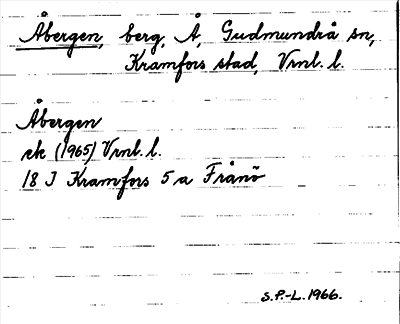 Åbergen, berg, Å, Gudmundrå sn,
Kramfors stad, Vrnl. l.
Åbergen
ek (1965) Vrnl. l.
18 J Kramfors 5 a Frånö
S.P.-L. 1966.